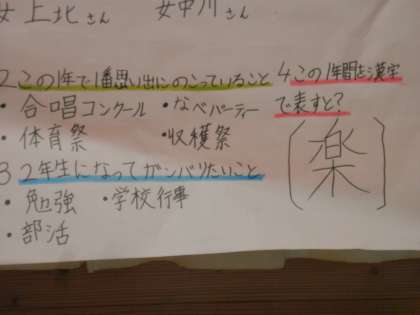 女上北さん 女中川さん
2.この1年で1番思い出にのこっていること
・合唱コンクール ・なべパーティー
・体育祭 ・収穫祭
3 2年生になってガンバりたいこと
・勉強 ・学校行事
・部活
4.この1年間を漢字
で表すと?
[楽]